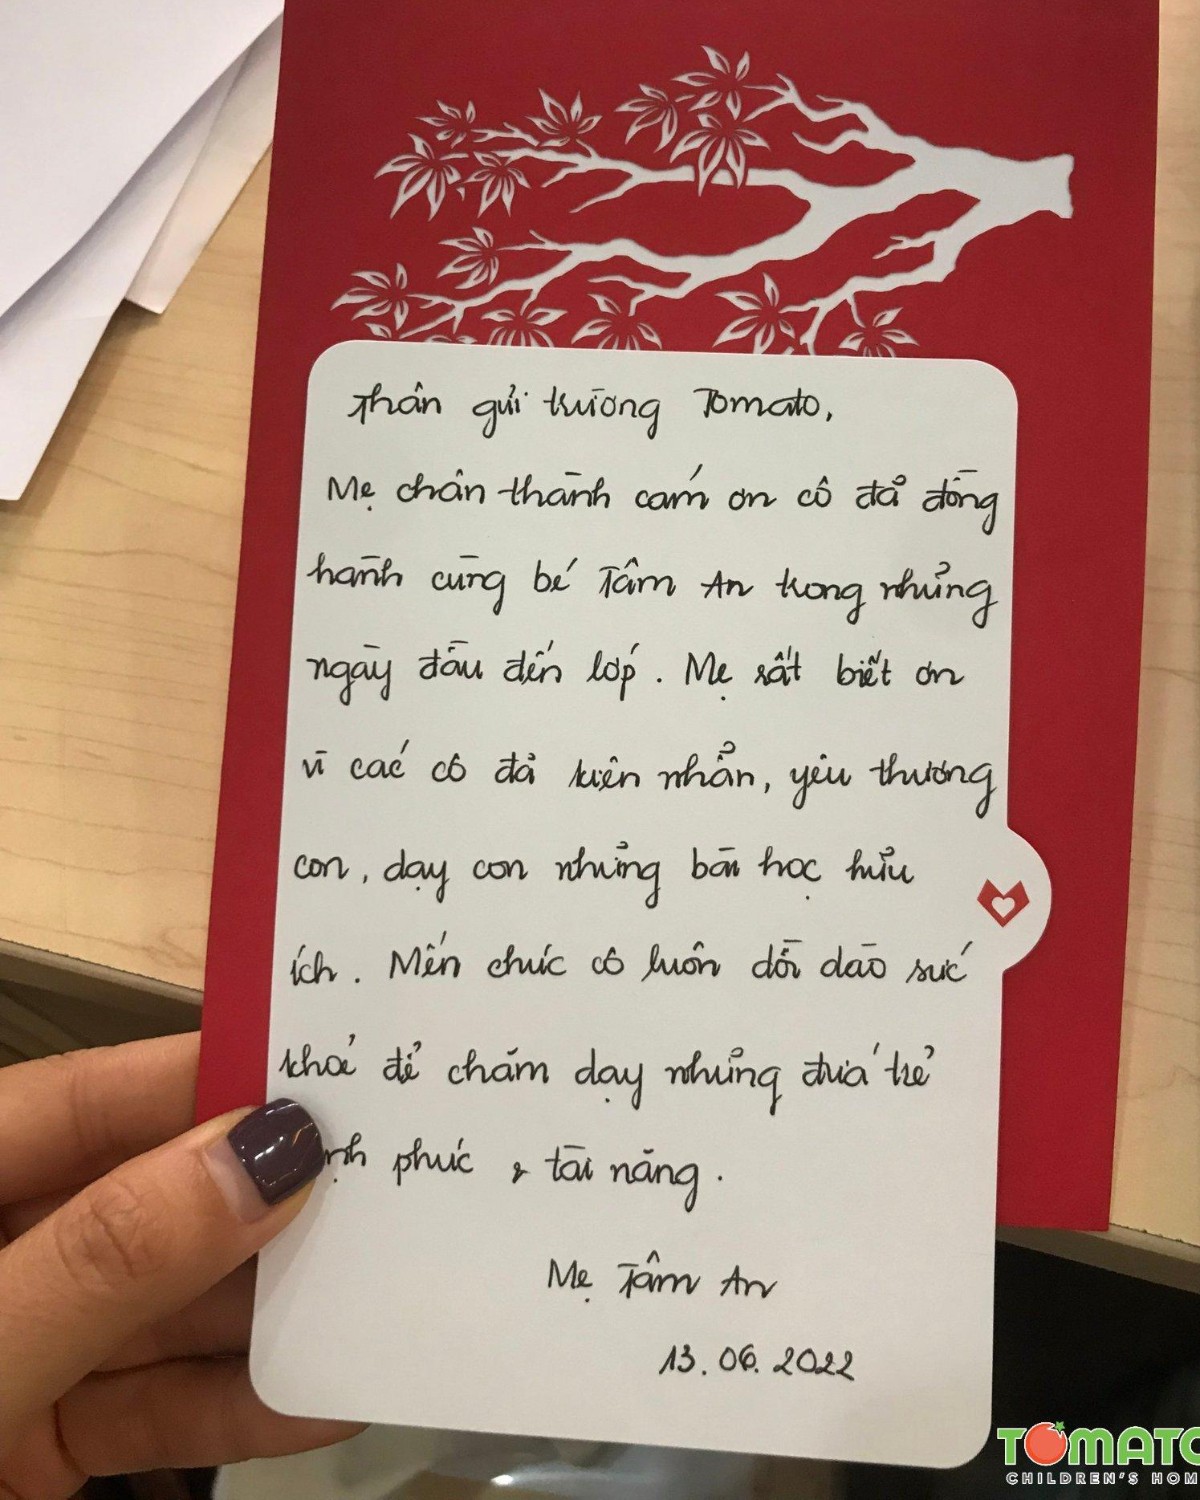 Thân gửi trường Tomato,
Mẹ chân thành cám ơn cô đã đồng
hành cùng bé Tâm An trong những
ngày đầu đến lớp. Mẹ rất biết ơn
vì các cô đã kiên nhẫn, yêu thương
con, dạy con những bài học hữu
ích. Mến chúc cô luôn dồi dào sức
khoẻ để chăm dạy những đứa trẻ
phúc & tài năng.
Mẹ Tâm An
13.06.2022
TOMATO
CHILDREN'S HOM